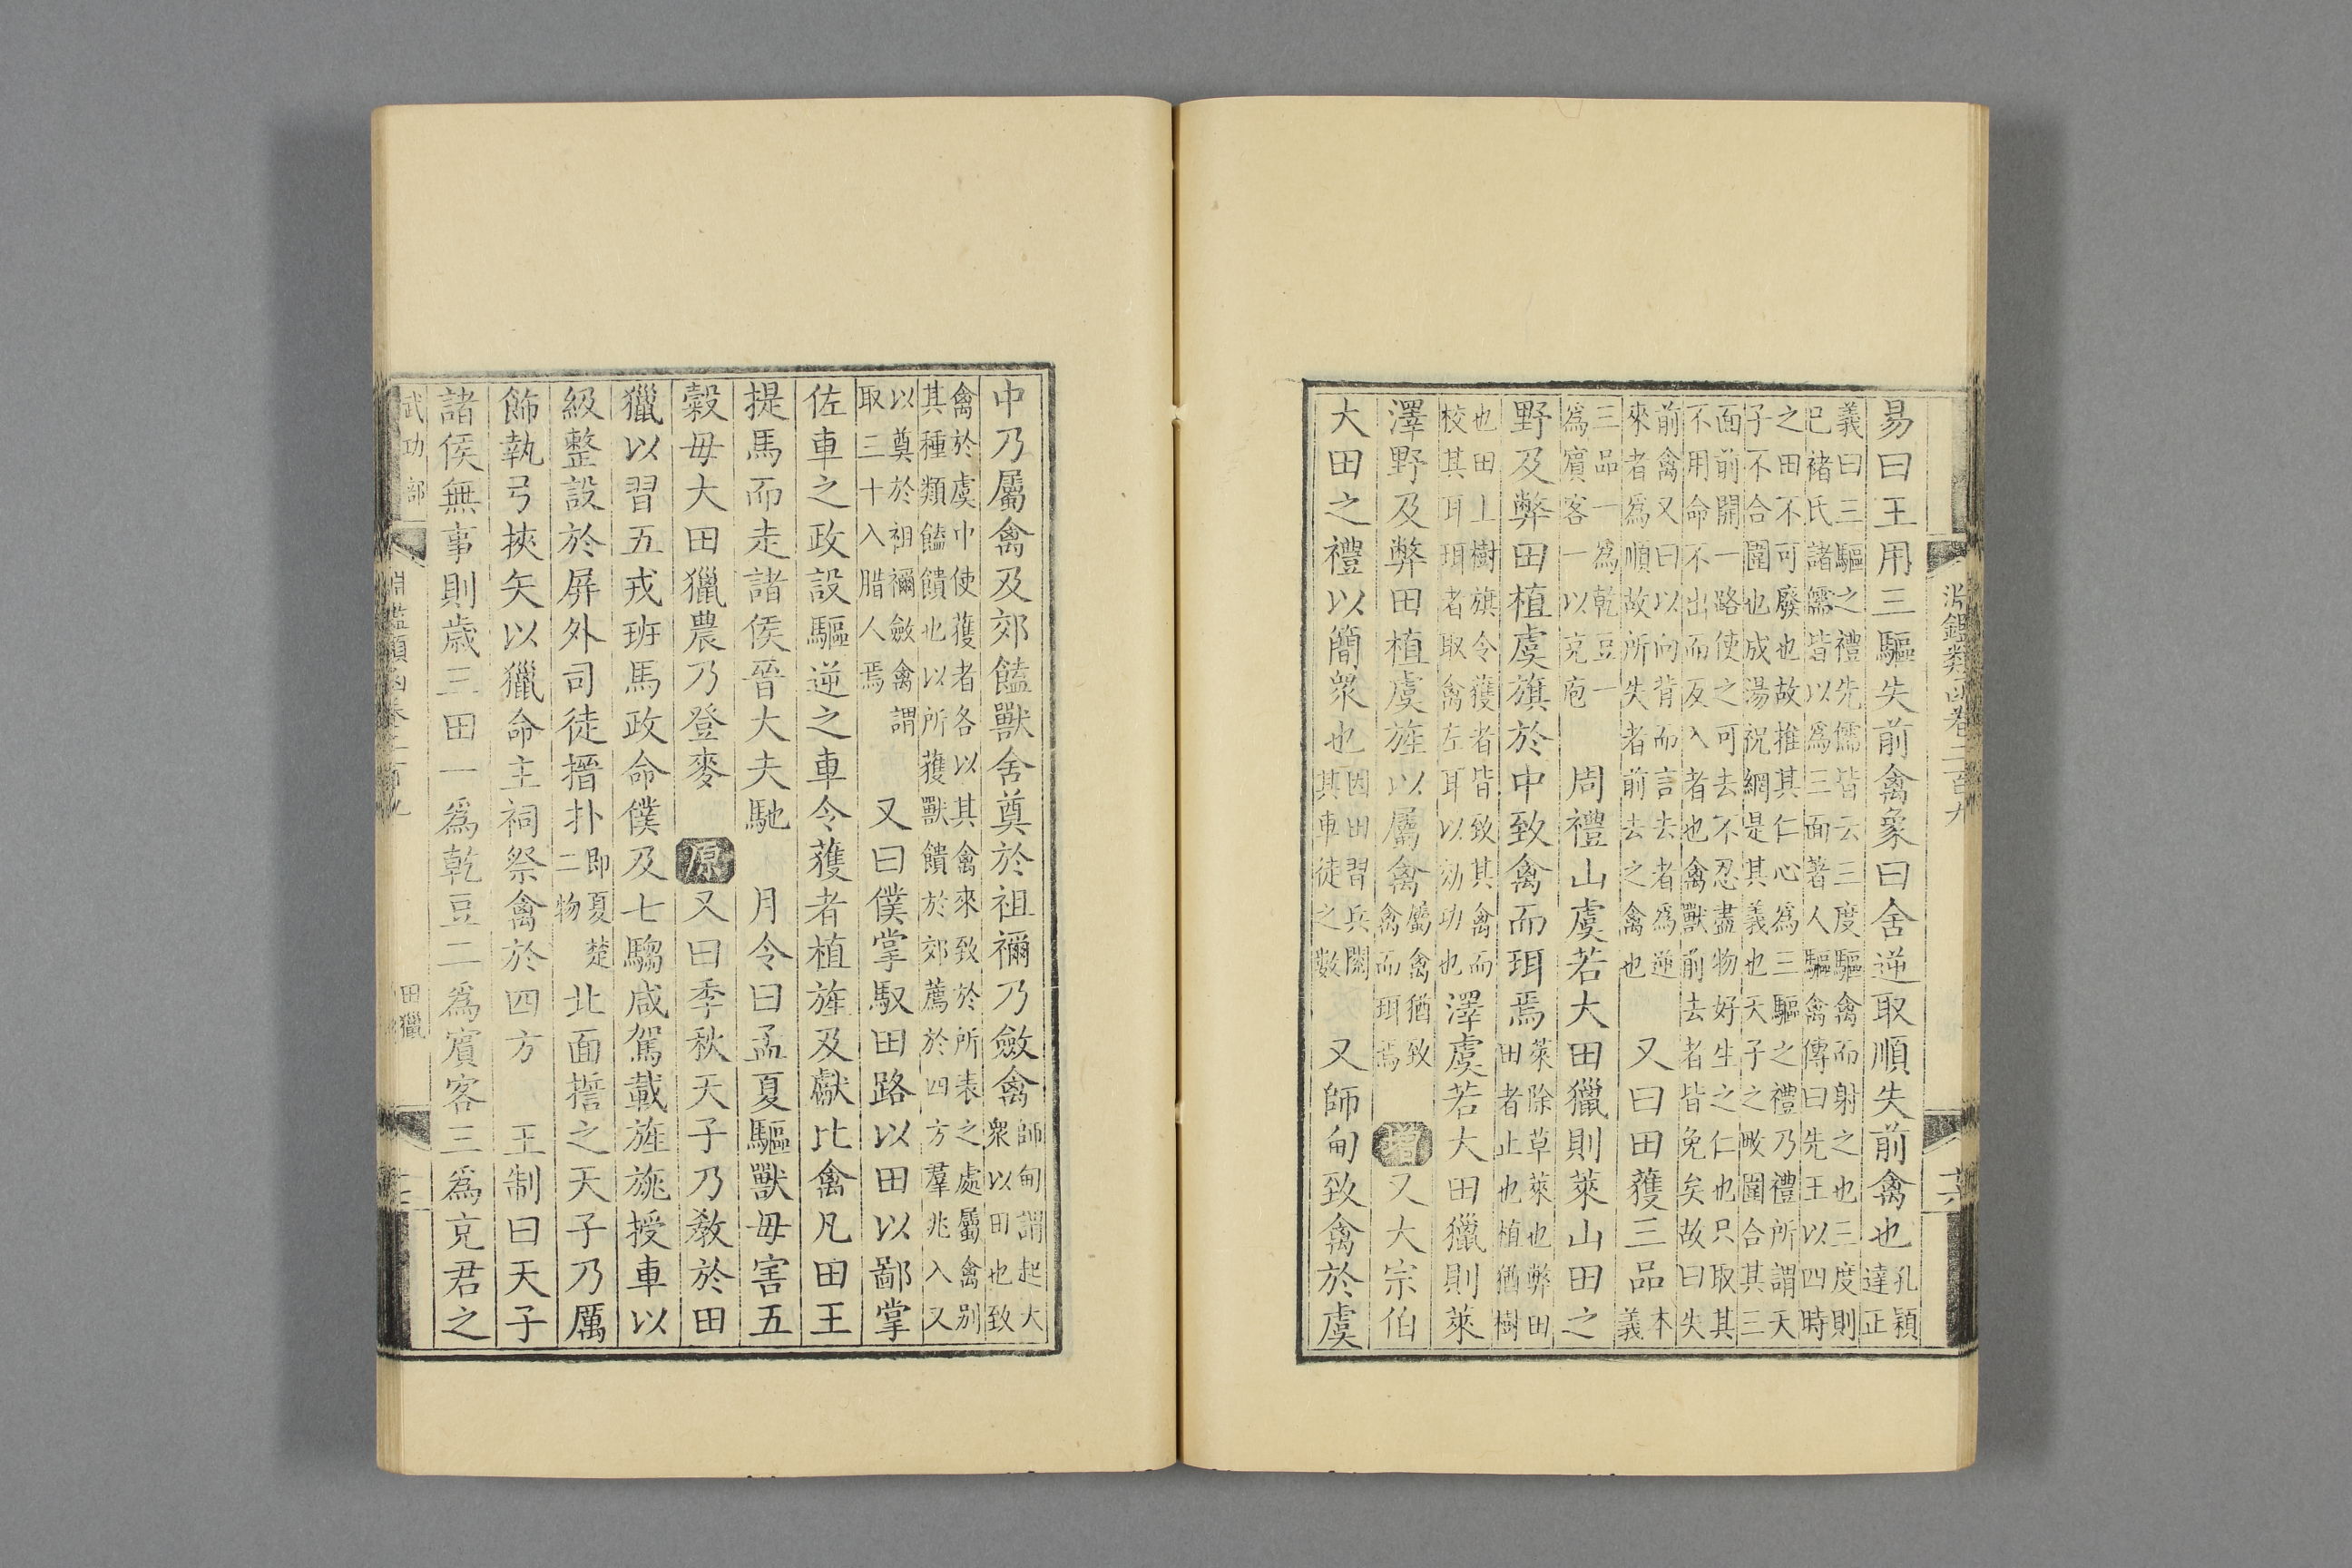 淵鑑類函卷二百九
易曰王用三驅失前禽象曰舍逆取順失前禽也孔穎達正
義曰三驅之禮先儒皆云三度驅禽而射之也三度則
已褚氏諸儒皆以為三面著人驅禽傳曰先王以四時
之田不可廢也故推其仁心為三驅之禮乃禮所謂天
子不合圍也成湯祝網是其義也天子之畋圍合其三
面前開一路使之可去不忍盡物好生之仁也只取其
不用命不出而反入者也禽獸前去者皆免矣故曰失
前禽又曰以向背而言去者為逆來者為順故所失者前去之禽也 又曰田獲三品本義
三品一為乾豆一為賓客一以充庖 周禮山虞若大田獵則萊山田之
野及弊田植虞旗於中致禽而珥焉萊除草萊也弊田田者止也植猶樹
也田上樹旗令獲者皆致其禽而校其耳珥者取禽左耳以効功也澤虞若大田獵則萊
澤野及弊田植虞旌以屬禽屬禽猶致禽而珥焉 增又大宗伯
大田之禮以簡衆也因田習兵閱其車徒之數 又師甸致禽於虞
中乃屬禽及郊饁獸舍奠於祖禰乃斂禽師甸謂起大衆以田也致
禽於虞中使獲者各以其禽來致於所表之處屬禽别
其種類饁饋也以所獲獸饋於郊薦於四方羣兆入又
以奠於祖禰斂禽謂取三十入腊人焉 又曰僕掌馭田路以田以鄙掌
佐車之政設驅逆之車令獲者植旌及獻比禽凡田王
提馬而走諸侯晉大夫馳 月令曰孟夏驅獸毋害五
穀毋大田獵農乃登麥 原又曰季秋天子乃教於田
獵以習五戎班馬政命僕及七騶咸駕載旌旐授車以
級整設於屏外司徒搢扑即夏楚二物北面誓之天子乃厲
飾執弓挾矢以獵命主祠祭禽於四方 王制曰天子
諸侯無事則歳三田一為乾豆二為賓客三為充君之
武功部 淵鑑類函卷二百九 田獵